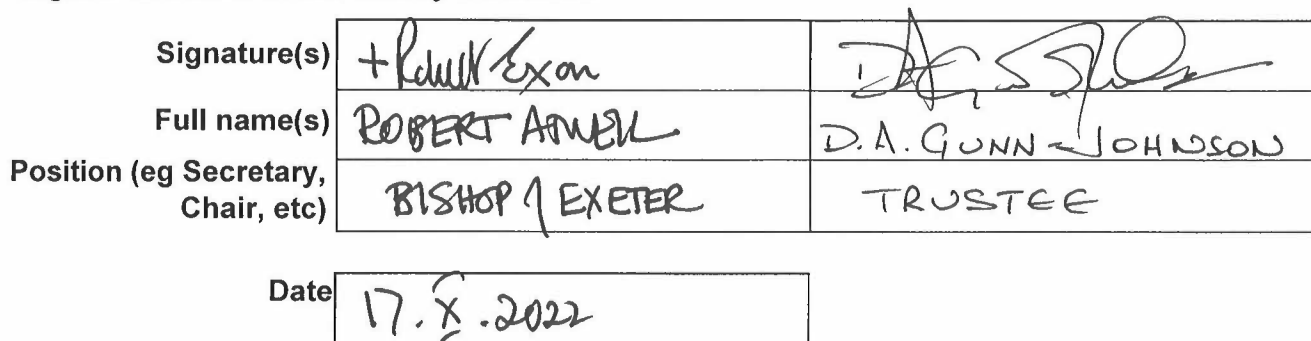 Signature(s) + Robert Exon
Full name(s) ROBERT ATWELL D.A. GUNN-JOHNSON
Position (eg Secretary,
Chair, etc) BISHOP of EXETER TRUSTEE
Date 17.X.2022